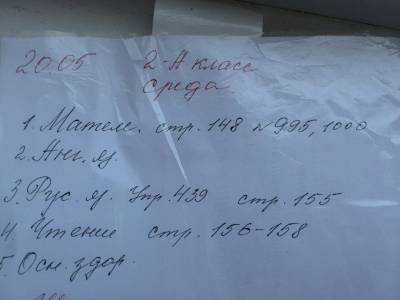 20.05 2-А класс
среда
1. Матем. стр. 148 №995, 1000
2. Анг. яз.
3. Рус. яз. Упр. 439 стр. 155
4. Чтение стр. 156-158
5. Осн. здор.